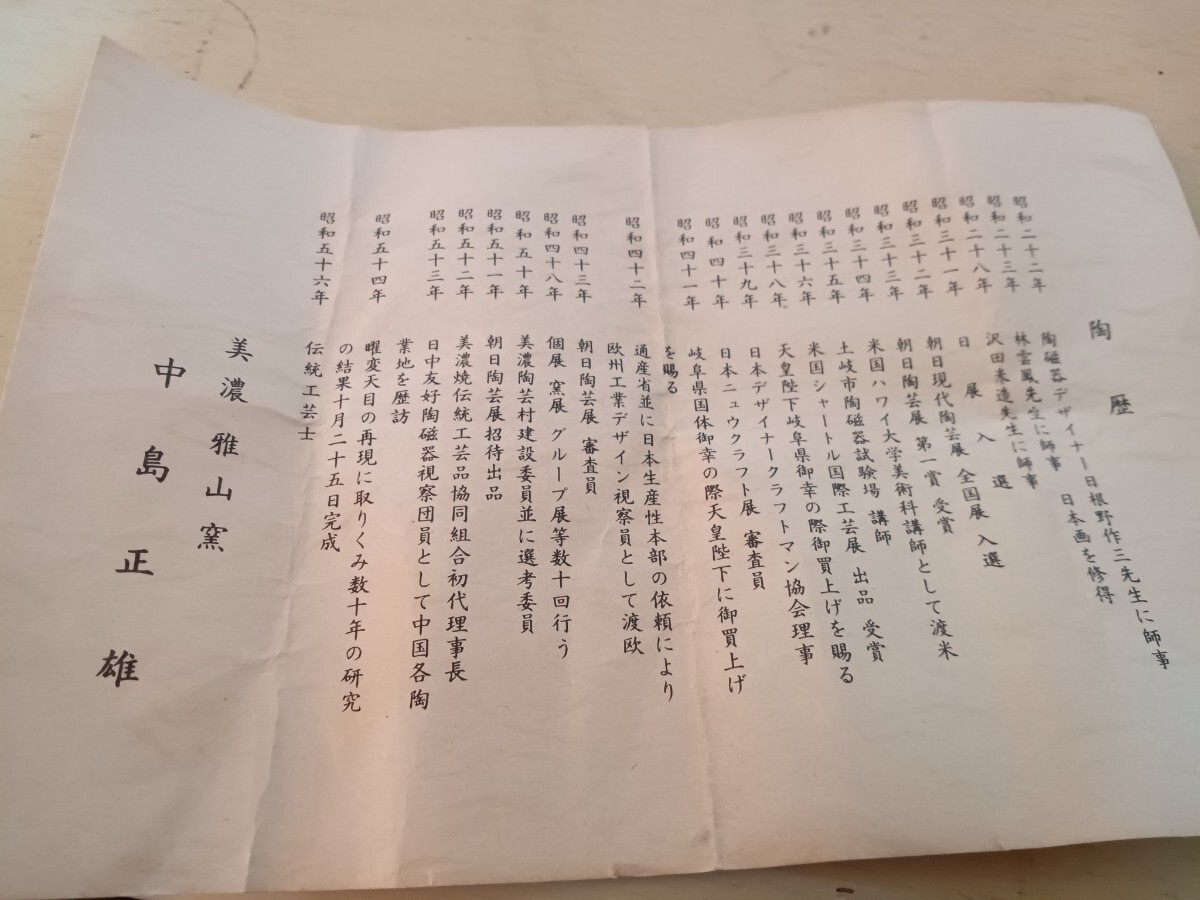 陶歴
昭和二十二年 陶磁器デザイナー日根野作三先生に師事
昭和二十三年 林雲鳳先生に師事 日本画を修得
昭和二十八年 沢田米造先生に師事
昭和三十一年 日展入選
昭和三十二年 朝日現代陶芸展 全国展 入選
昭和三十三年 朝日陶芸展 第一賞 受賞
昭和三十四年 米国ハワイ大学美術科講師として渡米
昭和三十五年 土岐市陶磁器試験場 講師
昭和三十六年 米国シャートル国際工芸展 出品 受賞
昭和三十八年 天皇陛下岐阜県御幸の際御買上げを賜る
昭和三十九年 日本デザイナークラフトマン協会理事
昭和四十年 日本ニュウクラフト展 審査員
昭和四十一年 岐阜県国体御幸の際天皇陛下に御買上げ
を賜る
昭和四十二年 通産省並に日本生産性本部の依頼により
欧州工業デザイン視察員として渡欧
昭和四十三年 朝日陶芸展 審査員
昭和四十八年 個展 窯展 グループ展等数十回行う
昭和五十年 美濃陶芸村建設委員並に選考委員
昭和五十一年 朝日陶芸展招待出品
昭和五十二年 美濃焼伝統工芸品協同組合初代理事長
昭和五十三年 日中友好陶磁器視察団員として中国各陶
業地を歴訪
昭和五十四年 曜変天目の再現に取りくみ数十年の研究
の結果十月二十五日完成
昭和五十六年 伝統工芸士
美濃 雅山窯
中島正雄